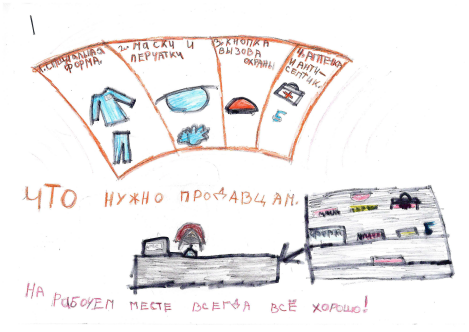 1
1. СПЕЦИАЛЬНАЯ
ФОРМА.
2. МАСКИ И
ПЕРЧАТКИ
3. КНОПКА
ВЫЗОВА
ОХРАНЫ
4. АПТЕЧКА
И АНТИ-
СЕПТИК.
ЧТО НУЖНО ПРОДАВЦАМ.
НА РАБОЧЕМ МЕСТЕ ВСЕГДА ВСЁ ХОРОШО!